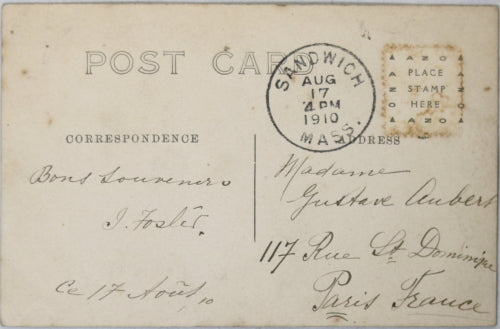 POST CARD
SANDWICH
AUG
17
4 PM
1910
MASS.
AZO AZO
PLACE
STAMP
HERE
AZO AZO
CORRESPONDENCE
ADDRESS
Bons Souvenirs
J. Foster.
Ce 17 Août, 10
Madame
Gustave Aubert
117 Rue St Dominique
Paris France